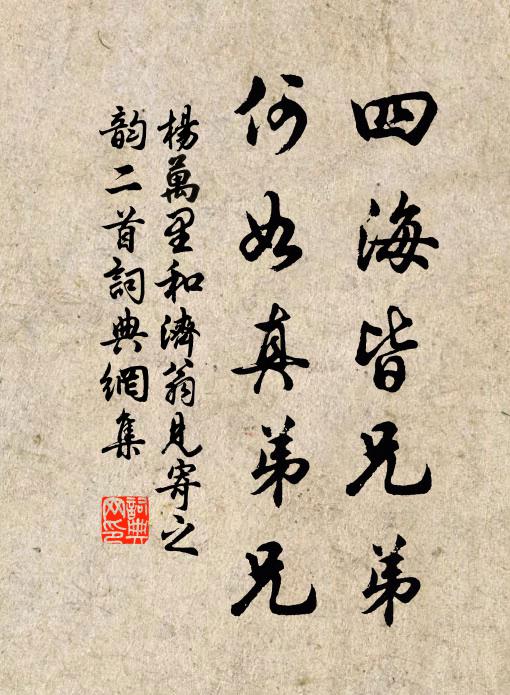 四海皆兄弟
何如真弟兄
楊萬里和濟翁見寄之
韵二首詞典網集
詞典
网印